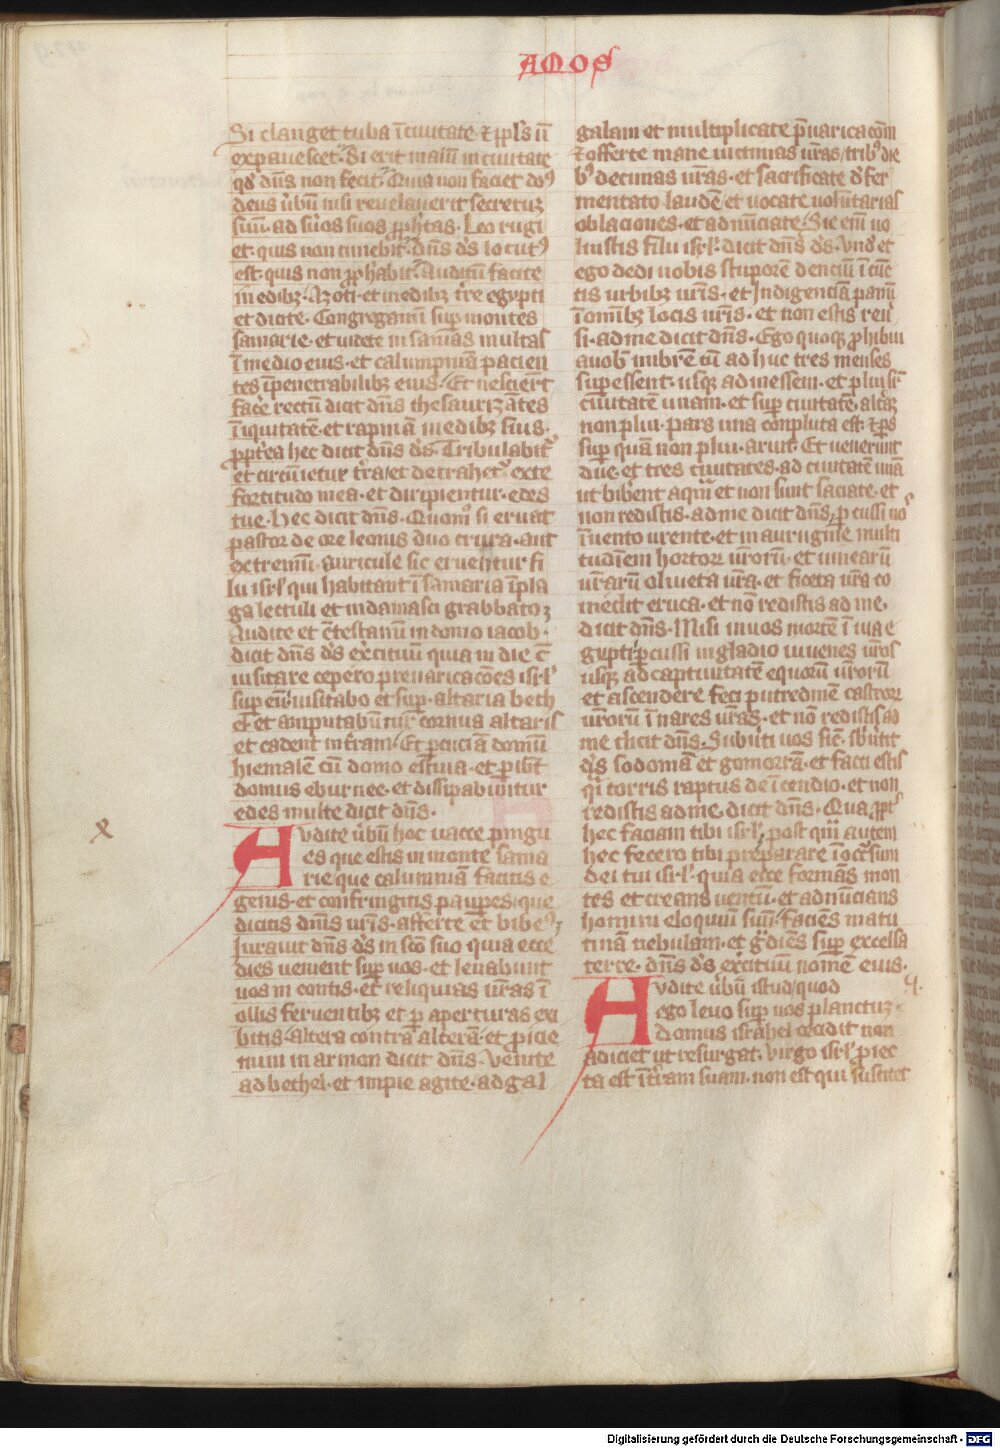 AMOS
Si clanget tuba ī ciuitate ⁊ ppl's ń
expauescet. Si erit malū in ciuitate
qd' dn̄s non fecit. Quia non faciet do⁹
deus ūbū nisi reuelauerit secretuꝫ
suū. ad s̄uos suos ꝓph̄etas. Leo rugi
et. quis non timebit. dn̄s d's locut⁹
est. quis non ꝓph̄abit. Auditū facite
in edibꝫ Azoti. et in edibꝫ t̄re egypti
et dicite. Congregamī suꝑ montes
samarie. et uidete insanias multas
ī medio eius. et calumpniā pacien
tes ī penetrabilibꝫ eius. Et nescier̄t
facere rectū dicit dn̄s thesauriz̄ātes
īiquitatē. et rapinā in edibꝫ suis.
ꝓpt'ea hec dicit dn̄s d's. Tribulabit᷑
et circūietur t̄ra. et detrahet᷑ exte
fortitudo mea. et diripientur. edes
tue. Hec dicit dn̄s. Quom̊ si eruat
pastor de ore leonis duo crura. aut
extremū. auricule sic eruentur fi
lii isr'l qui habitant ī samaria ī pla
ga lectuli et in damasci grabbatoꝫ
Audite et ꝯtestamī in domo iacob.
dicit dn̄s d's exercituū quia in die c̄
uisitare cepero preuaricac̄oēs isr'l
suꝑ eū uisitabo et suꝑ. altaria beth
el et amputabūtur cornua altaris
et cadent in t̄ram. Et ꝑcuciā domū
hiemalē cū domo estiua. et ꝑib't
domus eburnee. et dissipabūntur
edes multe dicit dn̄s.
x
Audite ūbū hoc uacce pingu
es que estis in monte sama
rie que calumniā facitis e
genis. et confringitis pauꝑes. que
dicitis dn̄is ūris. afferte et bibem⁹.
Jurauit dn̄s d's in sc̄o suo quia ecce
dies uenient suꝑ uos. et leuabunt
uos in contis. et reliquias ūras ī
ollis feruentibꝫ et ꝑ aperturas exi
bitis. altera contrā alterā. et proicie
mini in armon dicit dn̄s. Venite
ad bethel. et impie agite. ad gal
galam et multiplicate p̄uaricac̄om
⁊ offerte mane uictimas ūras. trib⁹ die
b⁹ decimas ūras. et sacrificate d' fer
mentato laudē. et uocate uolūtarias
oblaciones. et adnūciate. Sic eni᷑ uo
luistis filii isr'l. dicit dn̄s d's. vnd' et
ego dedi uobis stuporē denciū ī cūc
tis urbibꝫ ūris. et Indigenciā panū
ī omībꝫ locis ūris. et non estis reu᷑
si. ad me dicit dn̄s. Ego quoqꝫ ꝓhibui
a uob' imbrē cū adhuc tres menses
suꝑessent. usqꝫ ad messem. et plui sr᷑
ciuitatē unam. et suꝑ ciuitatē. altāꝫ
non plui. pars una conpluta est. ⁊ ꝑs
suꝑ quā non plui. aruit. Et uenerunt
due. et tres ciuitates. ad ciuitatē unā
ut biberent aqm̄ et non sunt saciate. et
non redistis. ad me dicit dn̄s. ꝑcussi uos
ī uento urente. et in aurugine multi
tudīem hortoꝝ ūroꝝ. et uinearū
ūrarū oliueta ūra. et ficeta ūra co
medit eruca. et nō redistis ad me.
dicit dn̄s. Misi in uos mortē ī uia e
gypti ꝑcussi in gladio iuuenes ūros
usqꝫ ad captiuitatē equoꝝ ūrorū
et ascendere feci putredinē castroꝝ
ūrorū ī nares ūras. et nō redistis ad
me dicit dn̄s. Subūti uos sic̄. sbūtit
d's sodomā et gomorrā. et facti estis
q̄i torris raptus de īcendio. et non
redistis ad me. dicit dn̄s. Qua ꝓpt'
hec faciam tibi isr'l. post qm̄ autem
hec fecero tibi preparare ī oc̄r̄sum
dei tui isr'l. quia ecce formās mon
tes et creans uentū. et adnūcians
homini eloquiū suū. faciēs matu
tinā nebulam. et g̊diēs suꝑ excelsa
terre. dn̄s d's exercituū nomē eius.
Audite ūbū istud quod 4.
ego leuo suꝑ uos planctuꝫ.
domus israhel cecidit non
adiciet ut resurgat. virgo isr'l ꝓiec
ta est ī t̄ram suam. non est qui suscitet
Digitalisierung gefördert durch die Deutsche Forschungsgemeinschaft - DFG